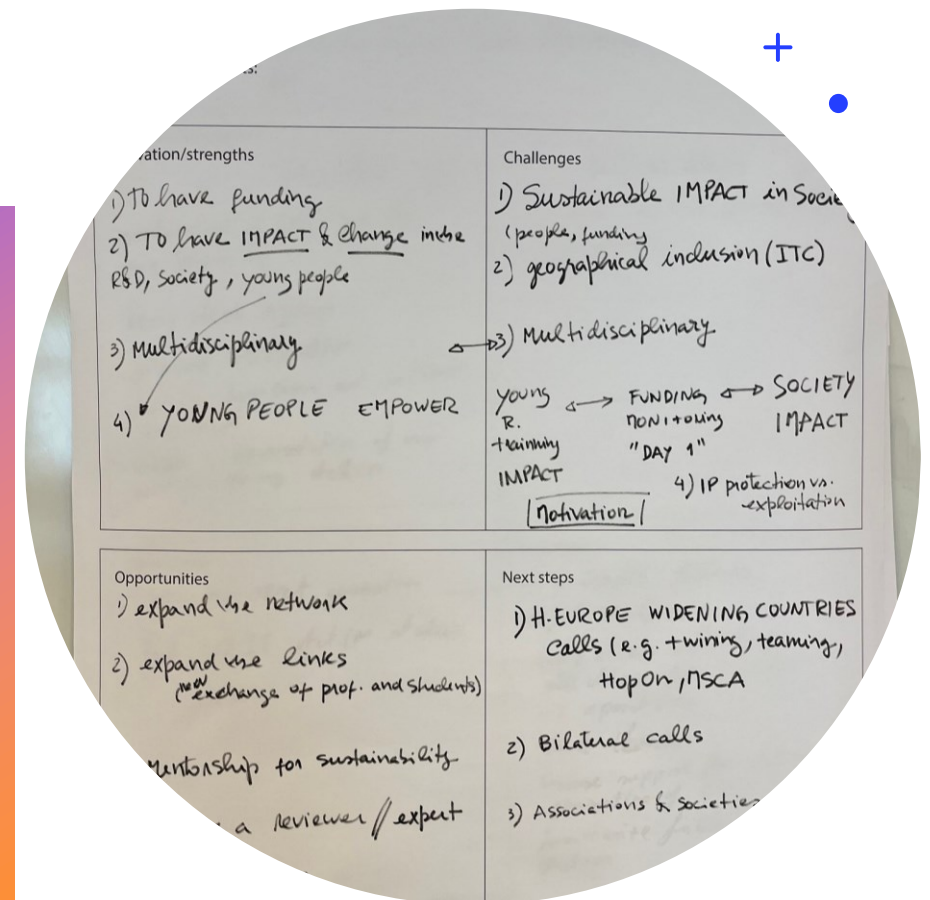 s:
vation/strengths
1) To have funding
2) To have IMPACT & Change in the
R&D, Society, young people
3) Multidisciplinary
4) YOUNG PEOPLE EMPOWER
Challenges
1) Sustainable IMPACT in Socie
(people, funding
2) geographical inclusion (ITC)
3) Multidisciplinary
young R. training IMPACT
FUNDING MONITORING "DAY 1"
SOCIETY IMPACT
4) IP protection vs.
exploitation
Motivation
Opportunities
1) expand the network
2) expand the links
(new exchange of prof. and students)
Mentorship for sustainability
a reviewer // expert
Next steps
1) H.EUROPE WIDENING COUNTRIES
calls (e.g. twining, teaming,
HopOn, MSCA
2) Bilateral calls
3) Associations & Societies